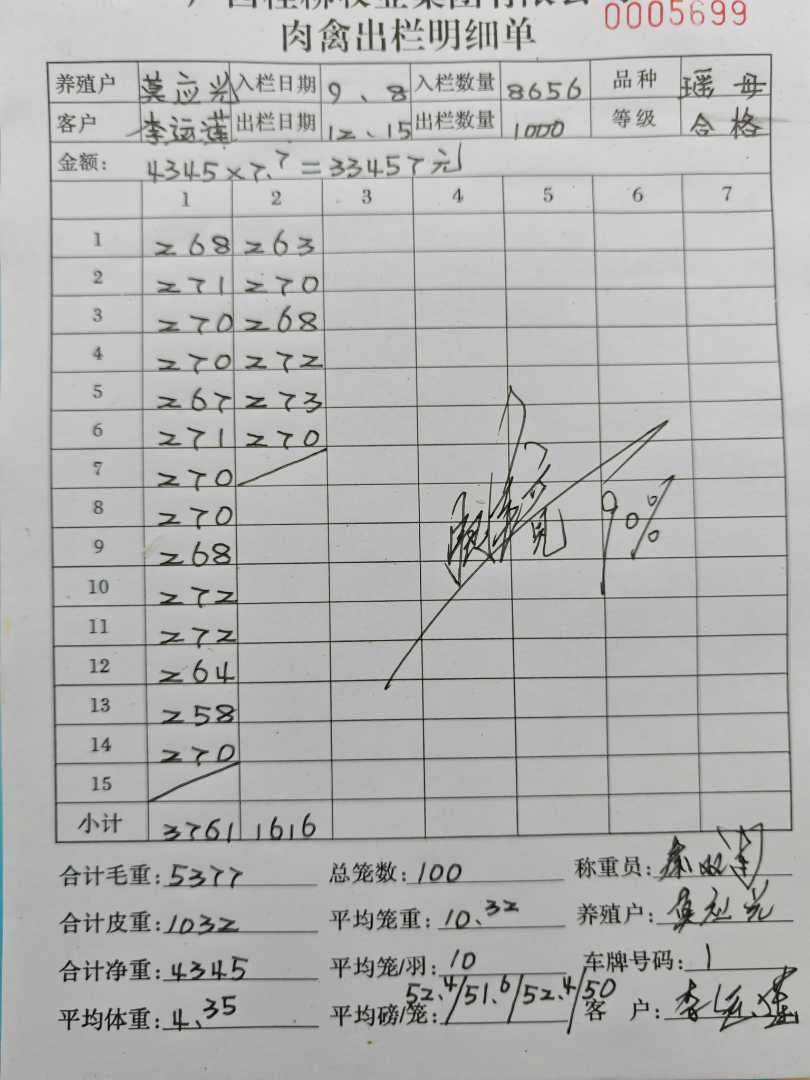 0005699
肉禽出栏明细单
养殖户 莫应光 入栏日期 9、8 入栏数量 8656 品种 瑶母
客户 李运莲 出栏日期 12、15 出栏数量 1000 等级 合格
金额: 4345×7.7=33457元
1 2 3 4 5 6 7
1 268 263
2 271 270
3 270 268
4 270 272
5 267 273
6 271 270
7 270
8 270
9 268 90%
10 272
11 272
12 264
13 258
14 270
15
小计 3761 1616
合计毛重: 5377 总笼数: 100 称重员:
合计皮重: 1032 平均笼重: 10.32 养殖户: 莫应光
合计净重: 4345 平均笼/羽: 10 车牌号码: 1
平均体重: 4.35 平均磅/笼: 52.4/51.6/52.4/50 客户: 李运莲